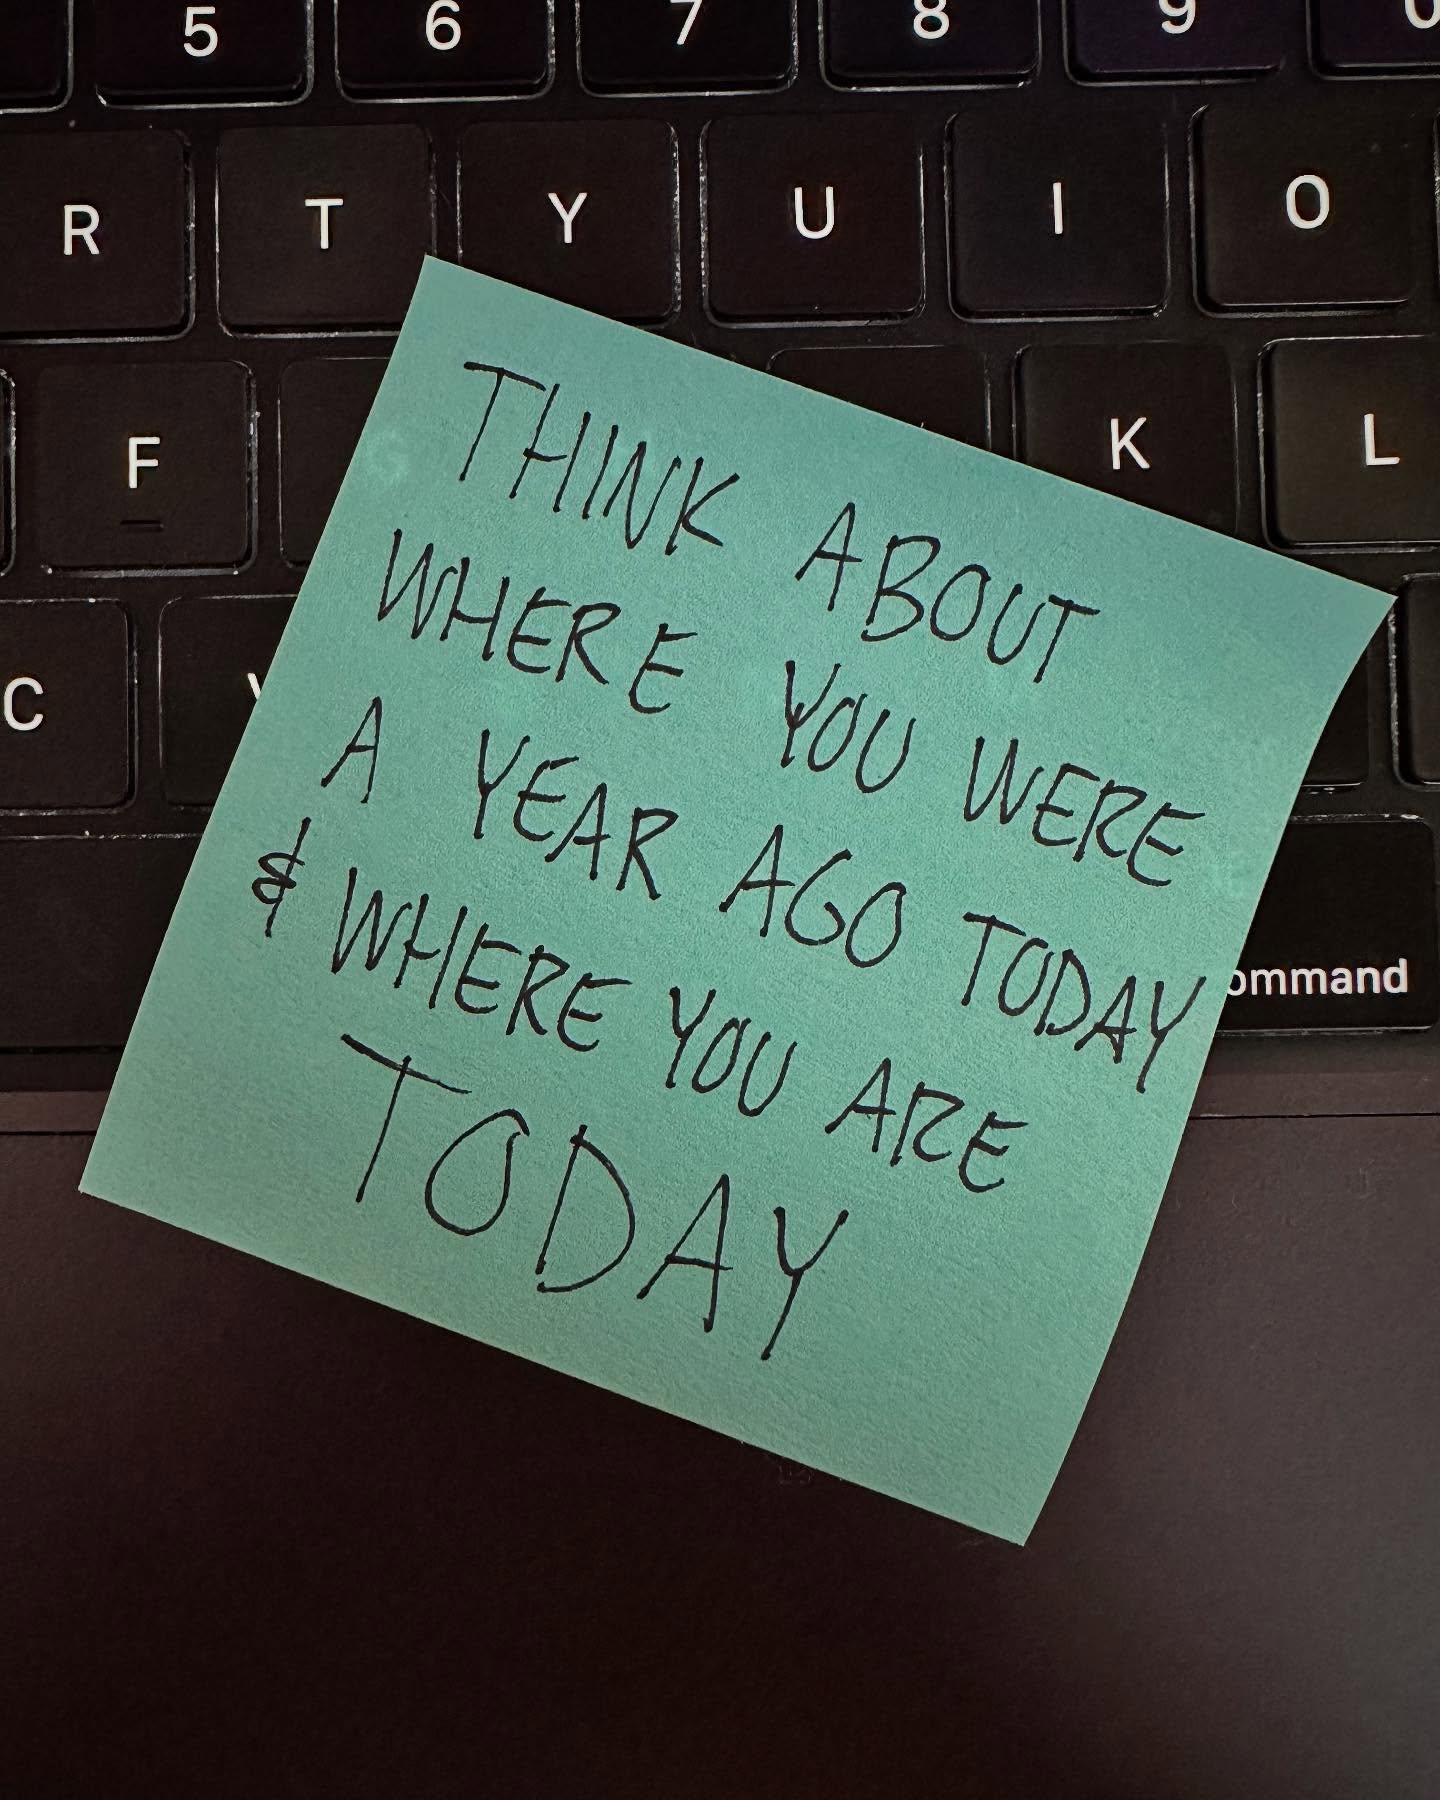 5 6 7 8 9 0
R T Y U I O
F K L
C
ommand
THINK ABOUT
WHERE YOU WERE
A YEAR AGO TODAY
& WHERE YOU ARE
TODAY